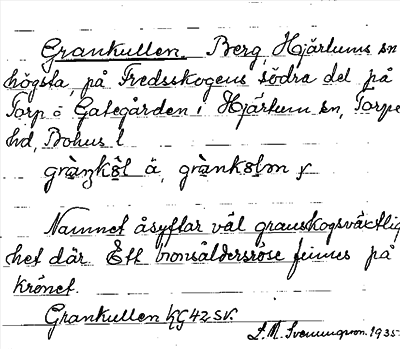 Grankullen. Berg, Hjärtums sn
högsta, på Fredsskogens södra del på
Torp o Gategården i Hjärtum sn, Torpe
hd, Bohus l
grànkə̀l ä, grànkələn y
Namnet åsyftar väl granskogsväxtlig
het där. Ett bronsåldersröse finnes på
krönet.
Grankullen KG 42 SV.
S. M. Svenningson. 1935